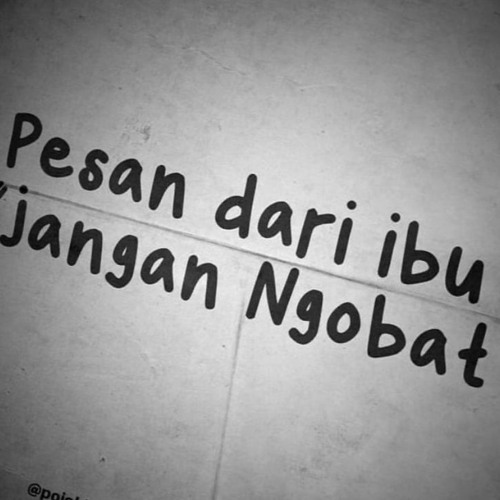 Pesan dari ibu
"jangan Ngobat